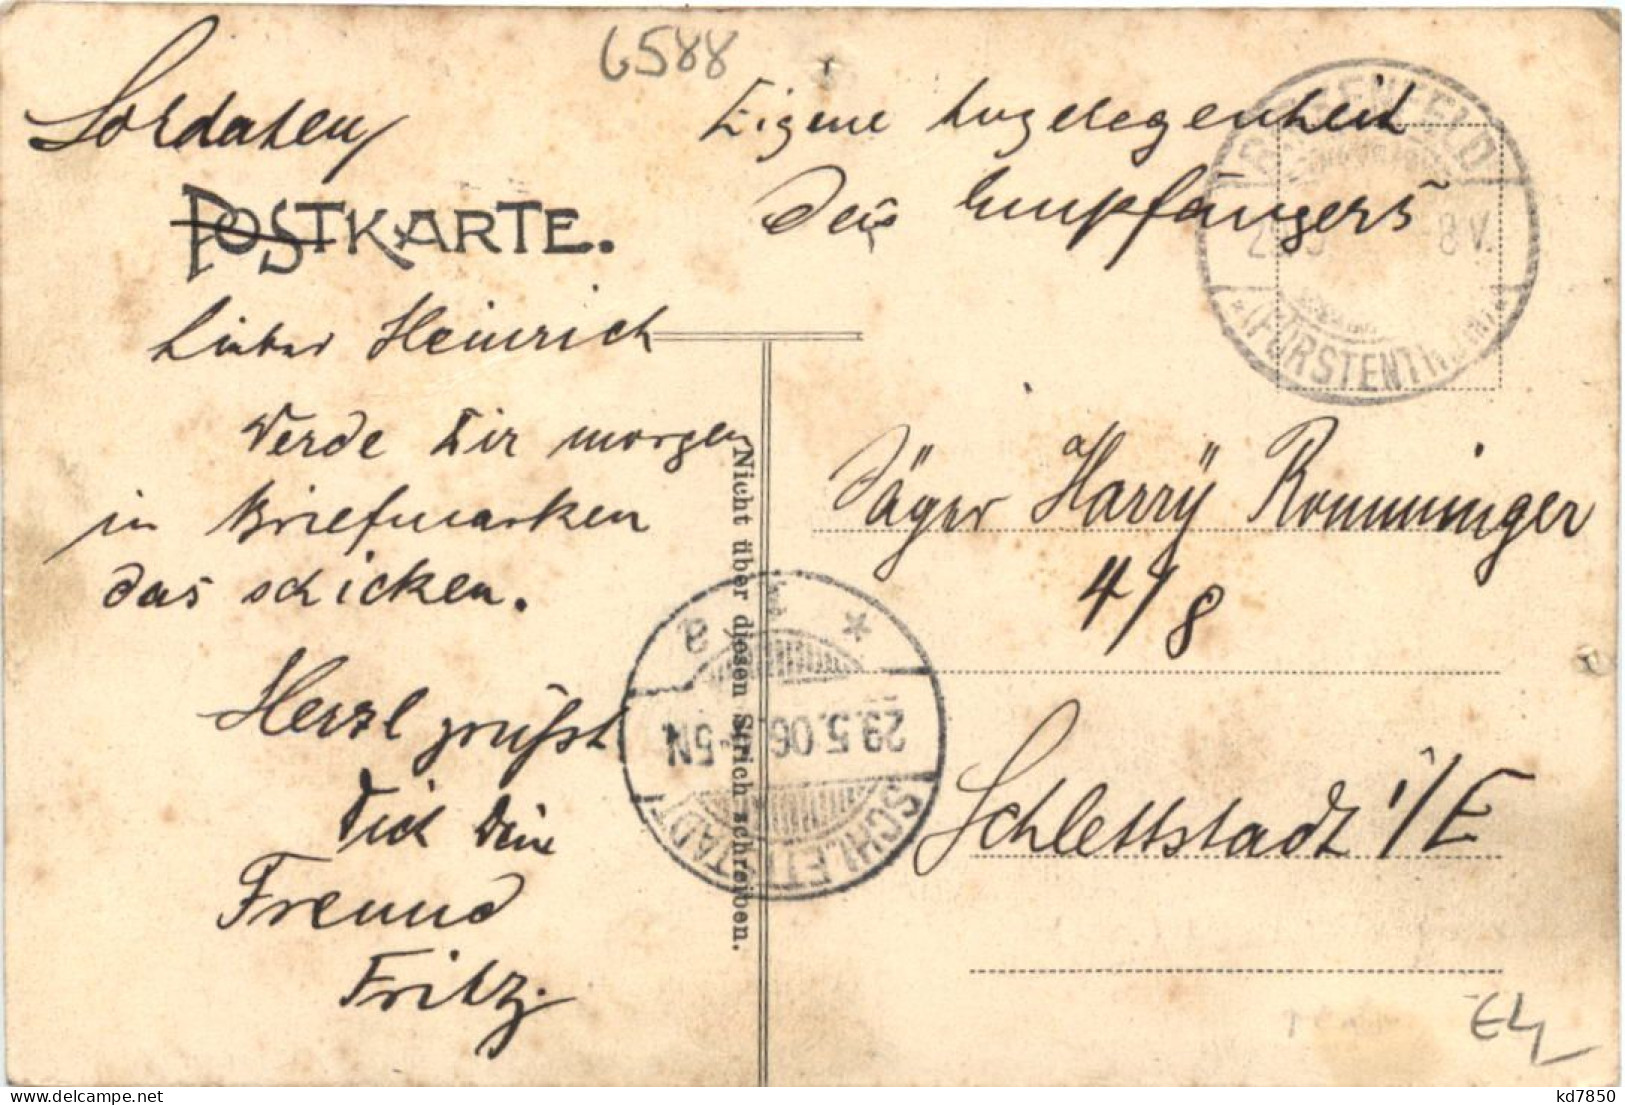 6588
Soldaten
POSTKARTE.
Eigene Angelegenheit
des Empfängers
Lieber Heinrich
Werde Dir morgen
in Briefmarken
das schicken.
Herzl grüsst
Dich Dein
Freund
Fritz.
Nicht über diesen Strich schreiben.
8 V.
(FÜRSTENTH.
SCHLETTSTADT
29.5.06
5N
* a
Jäger Harry Romminger
4/8
Schlettstadt i/E
kd7850